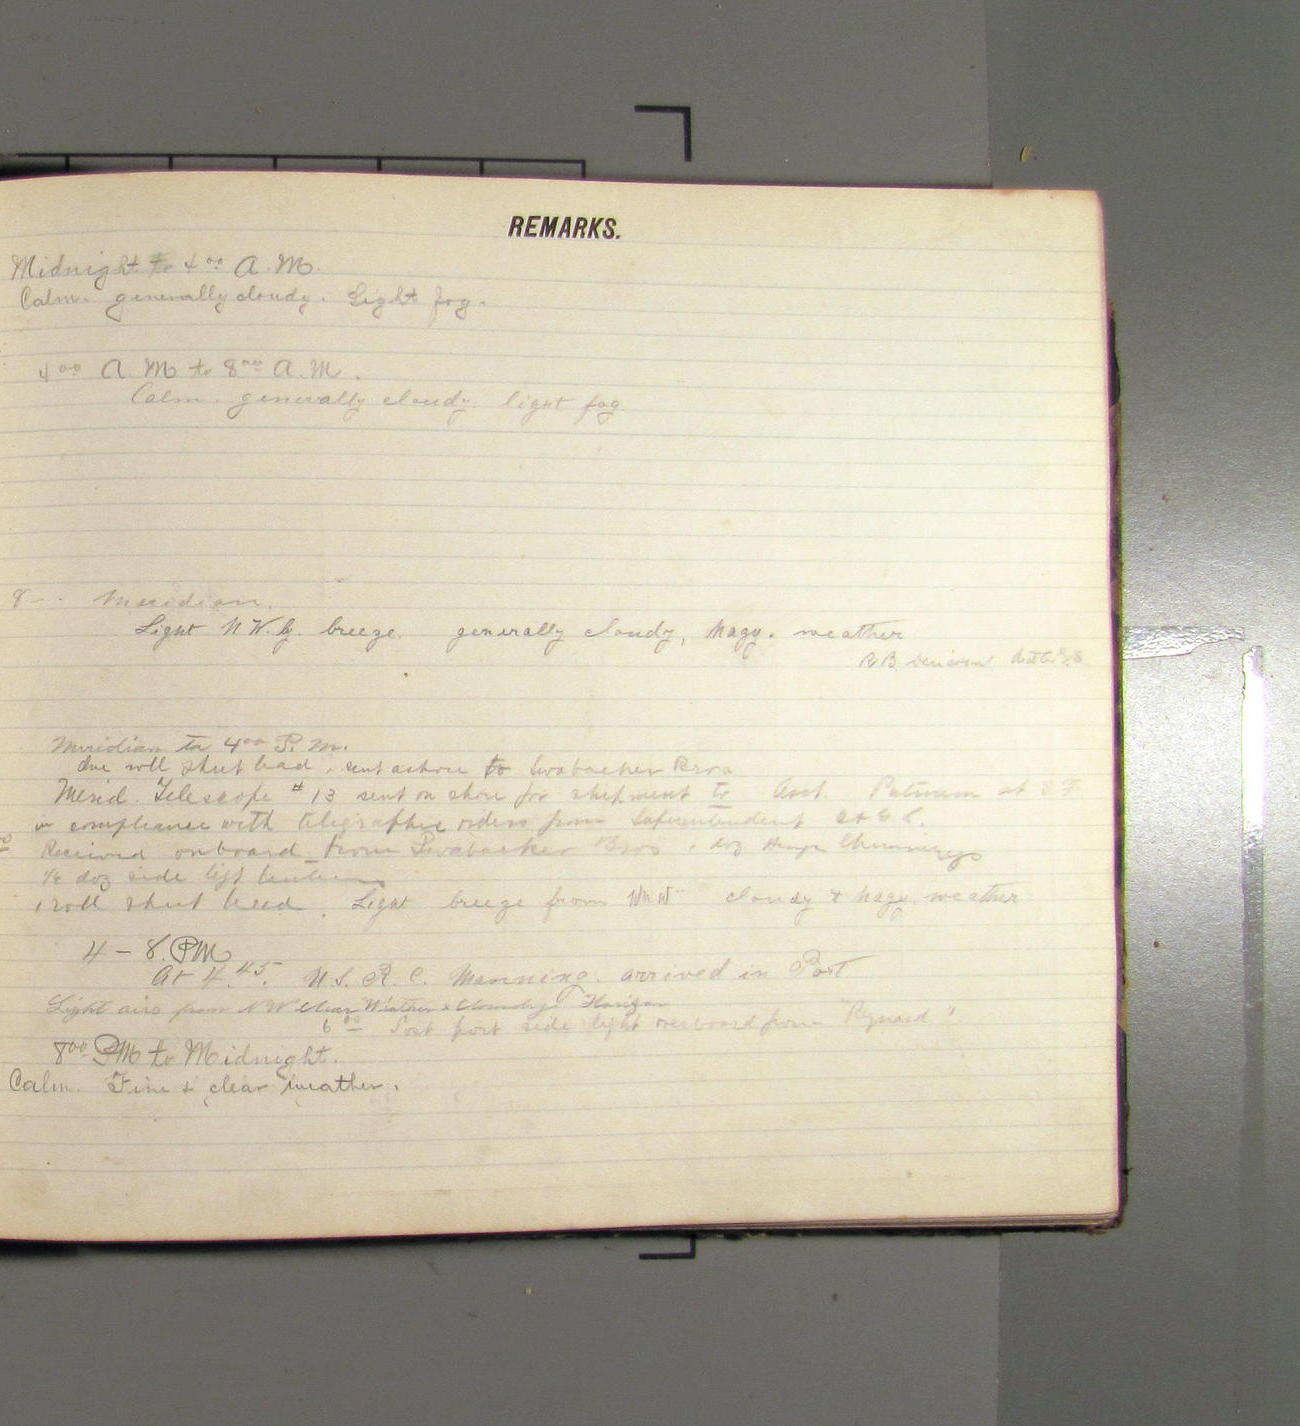 REMARKS.
Midnight to 4⁰⁰ A.M.
Calm. generally cloudy. Light fog.
4⁰⁰ A.M to 8⁰⁰ A.M.
Calm. generally cloudy. light fog
8 - Meridian.
Light N.W.ly. breeze. generally cloudy, hazy. weather
R B
Meridian to 4⁰⁰ P.M.
One roll sheet lead, sent ashore to Swabacker Bros
Merid. Telescope #13 sent on shore for shipment to Asst. Putnam at S F
in compliance with telegraphic orders from Superintendent
Received onboard from Swabacker Bros 1 doz Chimneys
½ doz side light
1 roll sheet lead. Light breeze from cloudy & hazy. weather
4 - 8. PM
At 4.45. U.S.R.C. Manning. arrived in Port
Light airs from N W Clear Weather & Cloudy Horizon
6⁰⁰ Lost port side light overboard from
8⁰⁰ PM to Midnight.
Calm. Fine & clear weather.